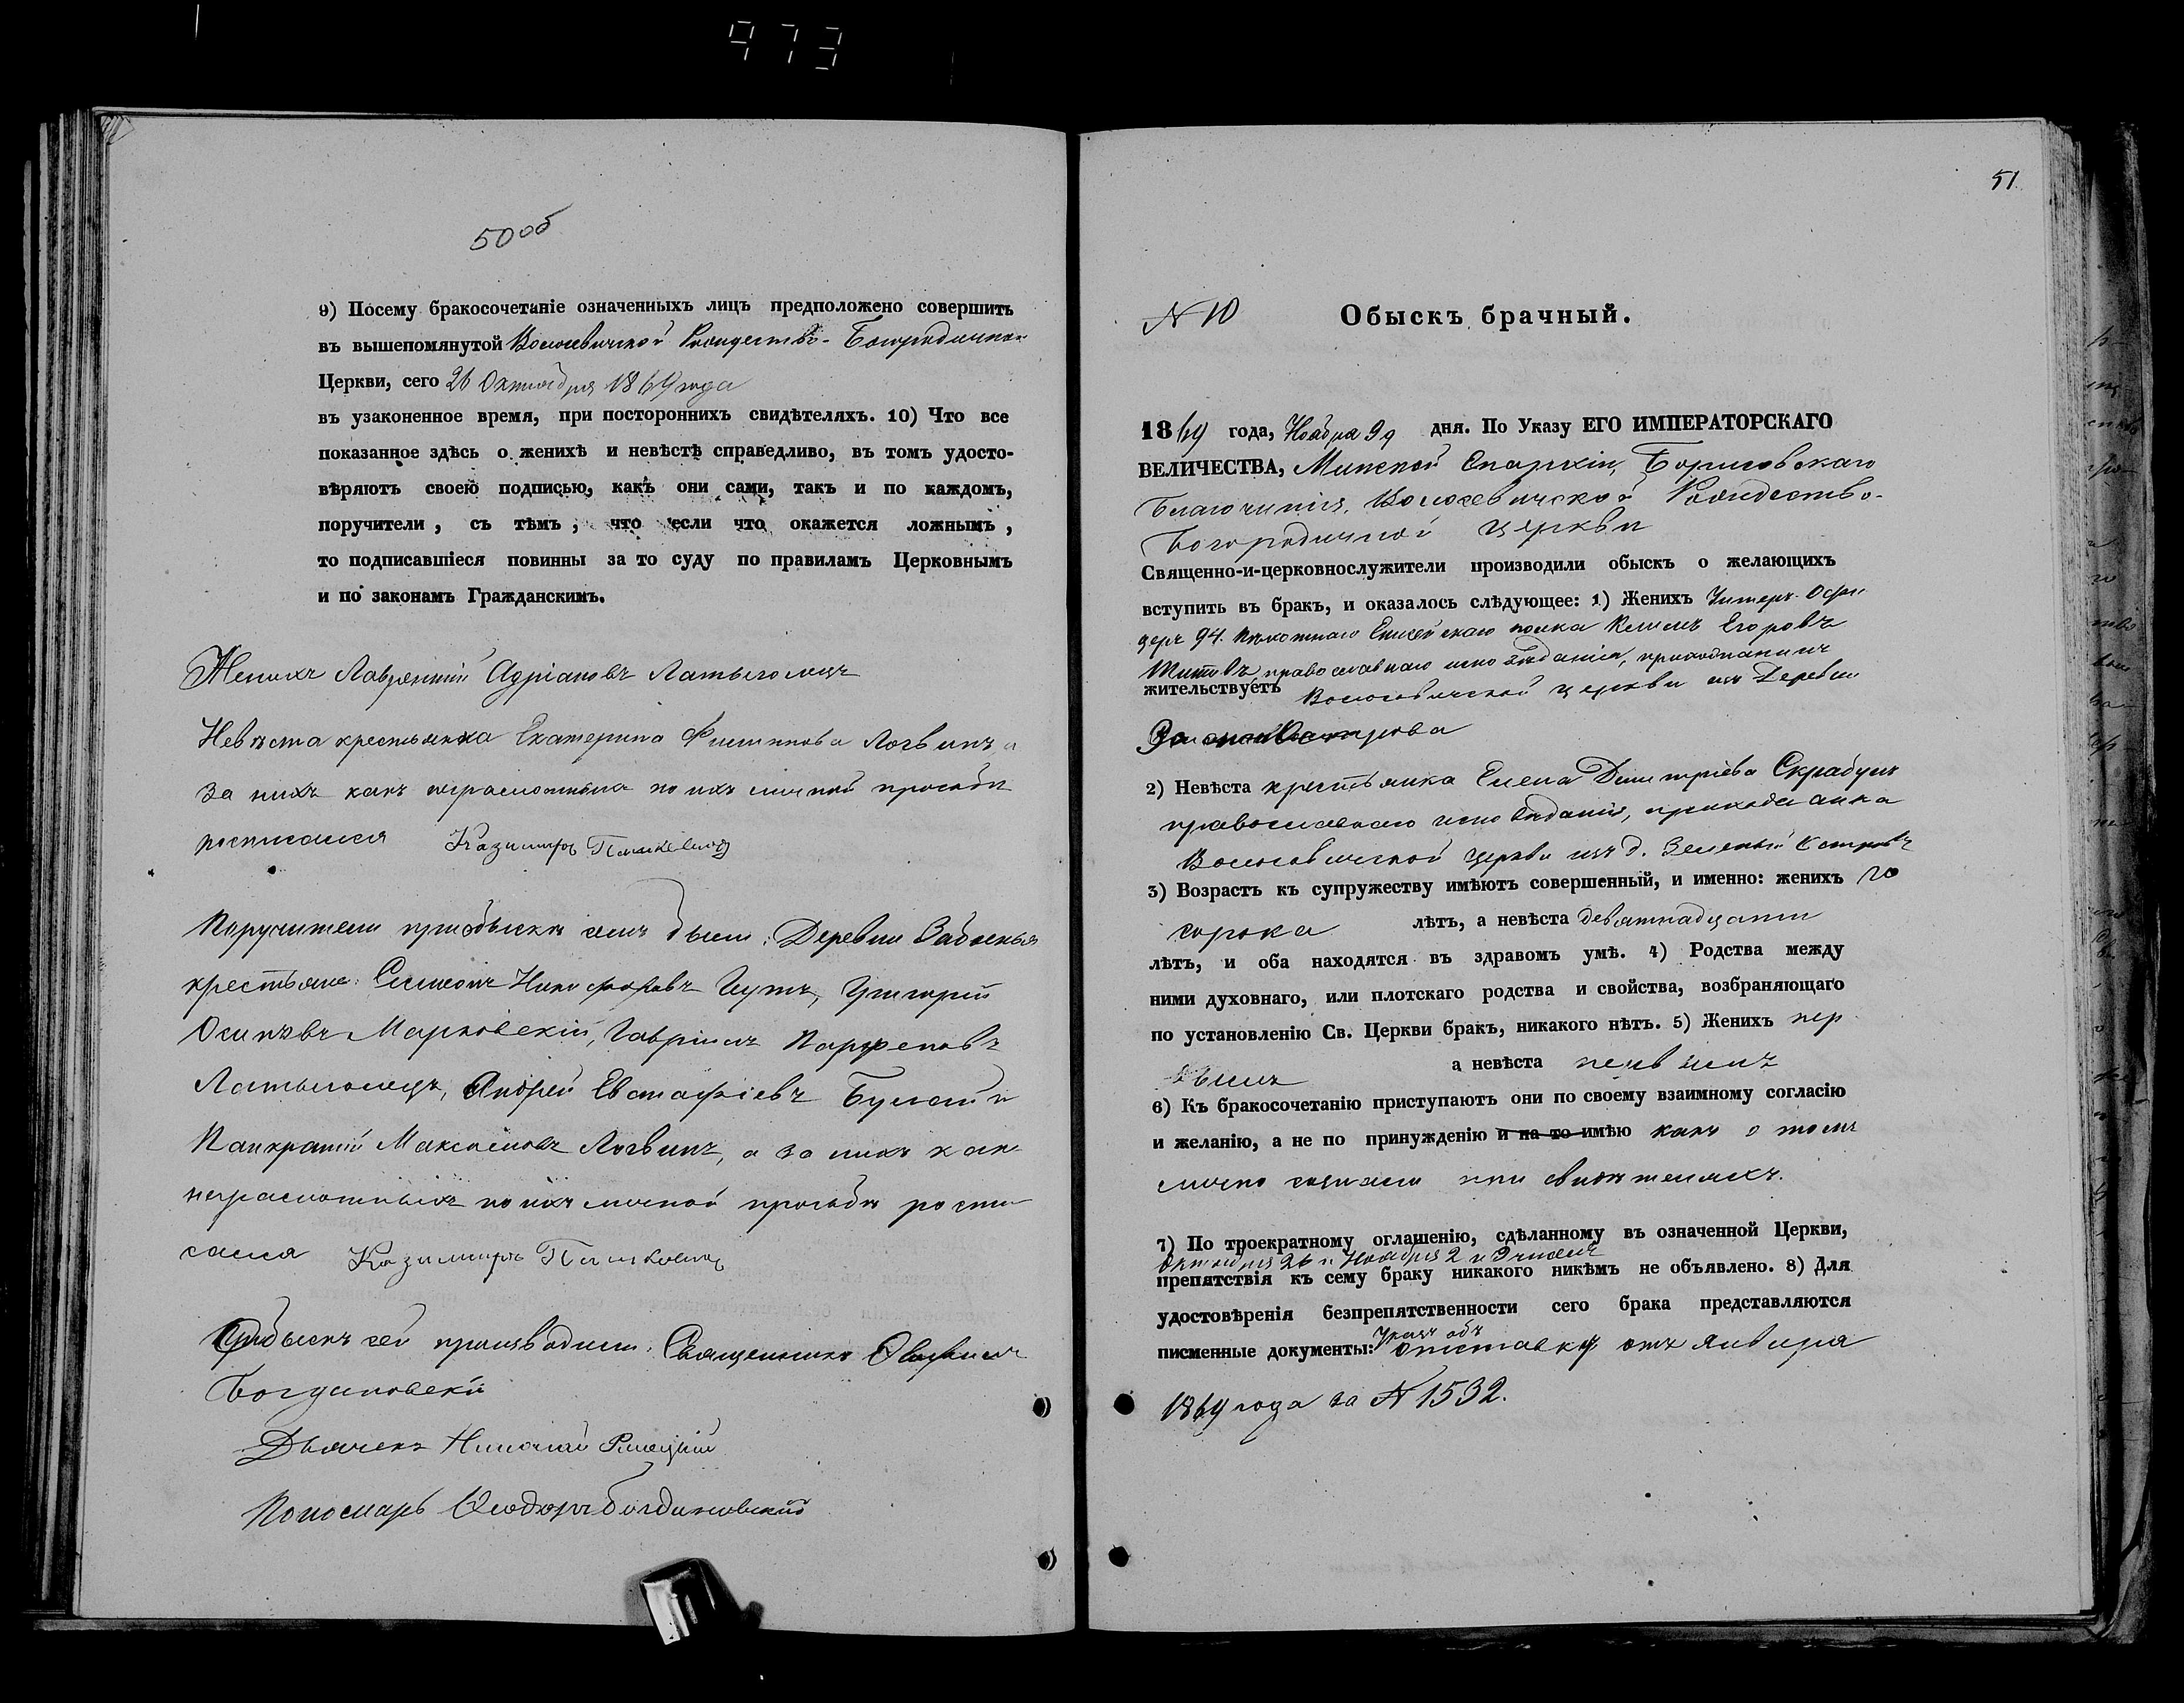 973
50 об
9) Посему бракосочетаніе означенныхъ лицъ предположено совершить
въ вышепомянутой Волосевичской Рождество-Богородичной
Церкви, сего 26 Октября 1869 года
въ узаконенное время, при постороннихъ свидѣтеляхъ. 10) Что все
показанное здѣсь о женихѣ и невѣстѣ справедливо, въ томъ удосто-
вѣряютъ своею подписью, какъ они сами, такъ и по каждомъ,
поручители, съ тѣмъ, что если что окажется ложнымъ,
то подписавшіеся повинны за то суду по правиламъ Церковнымъ
и по законамъ Гражданскимъ.
Женихъ Лаврентій Адріановъ Латыголецъ
Невѣста крестьянка Екатерина Логвинъ а
за нихъ какъ неграмотныхъ по ихъ личной прозьбѣ
росписался Казимиръ
Поручители при обыскѣ семъ были: Деревни
крестьяне: Симеонъ Никифоровъ Григорій
Осиповъ Марковскій, Гавріилъ Парфеновъ
Латыголецъ, Андрей Евстафіевъ и
Панкратій Максимовъ Логвинъ, а за нихъ какъ
неграмотныхъ по ихъ личной прозьбѣ роспи
сался Казимиръ
Обыскъ сей производили: Священникъ
Богдановскій
Дьячекъ Николай
Пономарь Ѳеодоръ Богдановскій
51
N 10
Обыскъ брачный.
1869 года, Ноября 9 д дня. По Указу ЕГО ИМПЕРАТОРСКАГО
ВЕЛИЧЕСТВА, Минской Епархіи, Борисовскаго
Благочинія, Волосевичской Рождество-
Богородичной церкви
Священно-и-церковнослужители производили обыскъ о желающихъ
вступить въ бракъ, и оказалось слѣдующее: 1) Женихъ Унтеръ-Офи
церъ 94. пѣхотнаго Енисейскаго полка Егоровъ
Титовъ православнаго исповѣданія, прихожанинъ
жительствуетъ Волосевичской церкви изъ Деревни
2) Невѣста крестьянка Елена Димитріева Скрабунъ
православнаго исповѣданія, прихожанка
Волосевичской церкви изъ д. Зеленый Островъ
3) Возрастъ къ супружеству имѣютъ совершенный, и именно: женихъ
сорока лѣтъ, а невѣста девятнадцати
лѣтъ, и оба находятся въ здравомъ умѣ. 4) Родства между
ними духовнаго, или плотскаго родства и свойства, возбраняющаго
по установленію Св. Церкви бракъ, никакого нѣтъ. 5) Женихъ пер
вымъ а невѣста первымъ
6) Къ бракосочетанію приступаютъ они по своему взаимному согласію
и желанію, а не по принужденію и на то имѣю какъ о томъ
лично при свидѣтеляхъ.
7) По троекратному оглашенію, сдѣланному въ означенной Церкви,
Октября 26 и Ноября 2 и 9 чиселъ
препятствія къ сему браку никакого никѣмъ не объявлено. 8) Для
удостовѣренія безпрепятственности сего брака представляются
писменные документы: Указъ объ отставкѣ отъ Января
1869 года за N 1532.